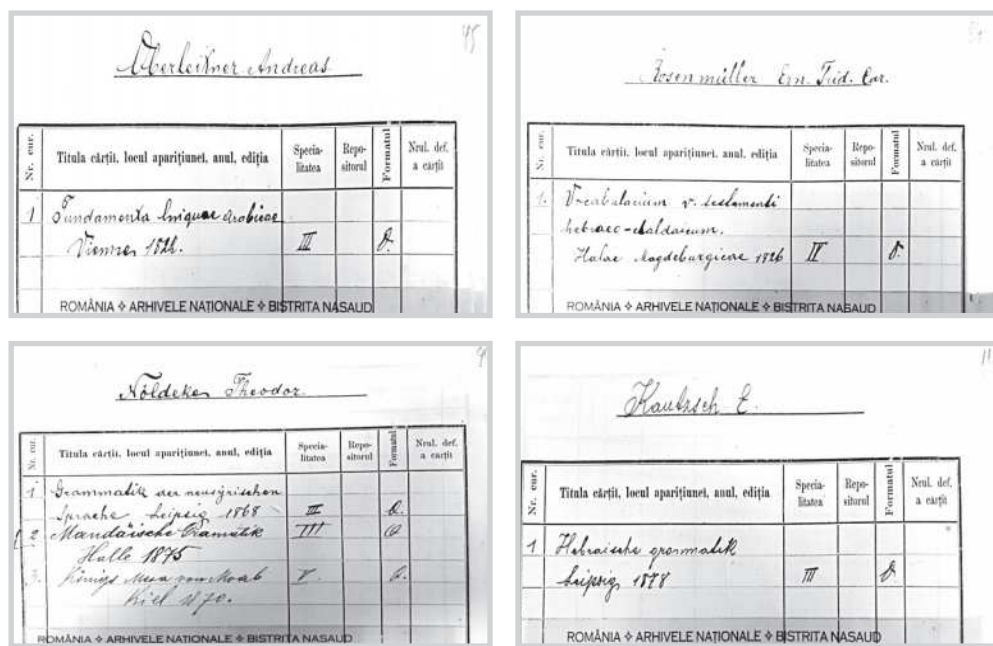 45
Oberleitner Andreas
Nr. cur. Titula cărții, locul aparițiunei, anul, ediția Specia-litatea Repo-sitorul Formatul Nrul. def. a cărții
1 Fundamenta linguae arabicae
Viennae 1822. III
ROMÂNIA ❖ ARHIVELE NAȚIONALE ❖ BISTRITA NASAUD
Rosenmüller Ern. Frid. Car.
Nr. cur. Titula cărții, locul aparițiunei, anul, ediția Specia-litatea Repo-sitorul Formatul Nrul. def. a cărții
1. Vocabularium v. testamenti
hebraeo-chaldaicum.
Halae Magdeburgicae 1826 IV
ROMÂNIA ❖ ARHIVELE NAȚIONALE ❖ BISTRITA NASAUD
Nöldeke Theodor
Nr. cur. Titula cărții, locul aparițiunei, anul, ediția Specia-litatea Repo-sitorul Formatul Nrul. def. a cărții
1 Grammatik der neusyrischen
Sprache Leipzig 1868 III O.
2 Mandäische Gramatik III O
Halle 1875
3. Königs Mesa von Moab V O.
Kiel 1870.
ROMÂNIA ❖ ARHIVELE NAȚIONALE ❖ BISTRITA NASAUD
11
Kautzsch E.
Nr. cur. Titula cărții, locul aparițiunei, anul, ediția Specia-litatea Repo-sitorul Formatul Nrul. def. a cărții
1 Hebraische grammatik
Leipzig 1878 III
ROMÂNIA ❖ ARHIVELE NAȚIONALE ❖ BISTRITA NASAUD